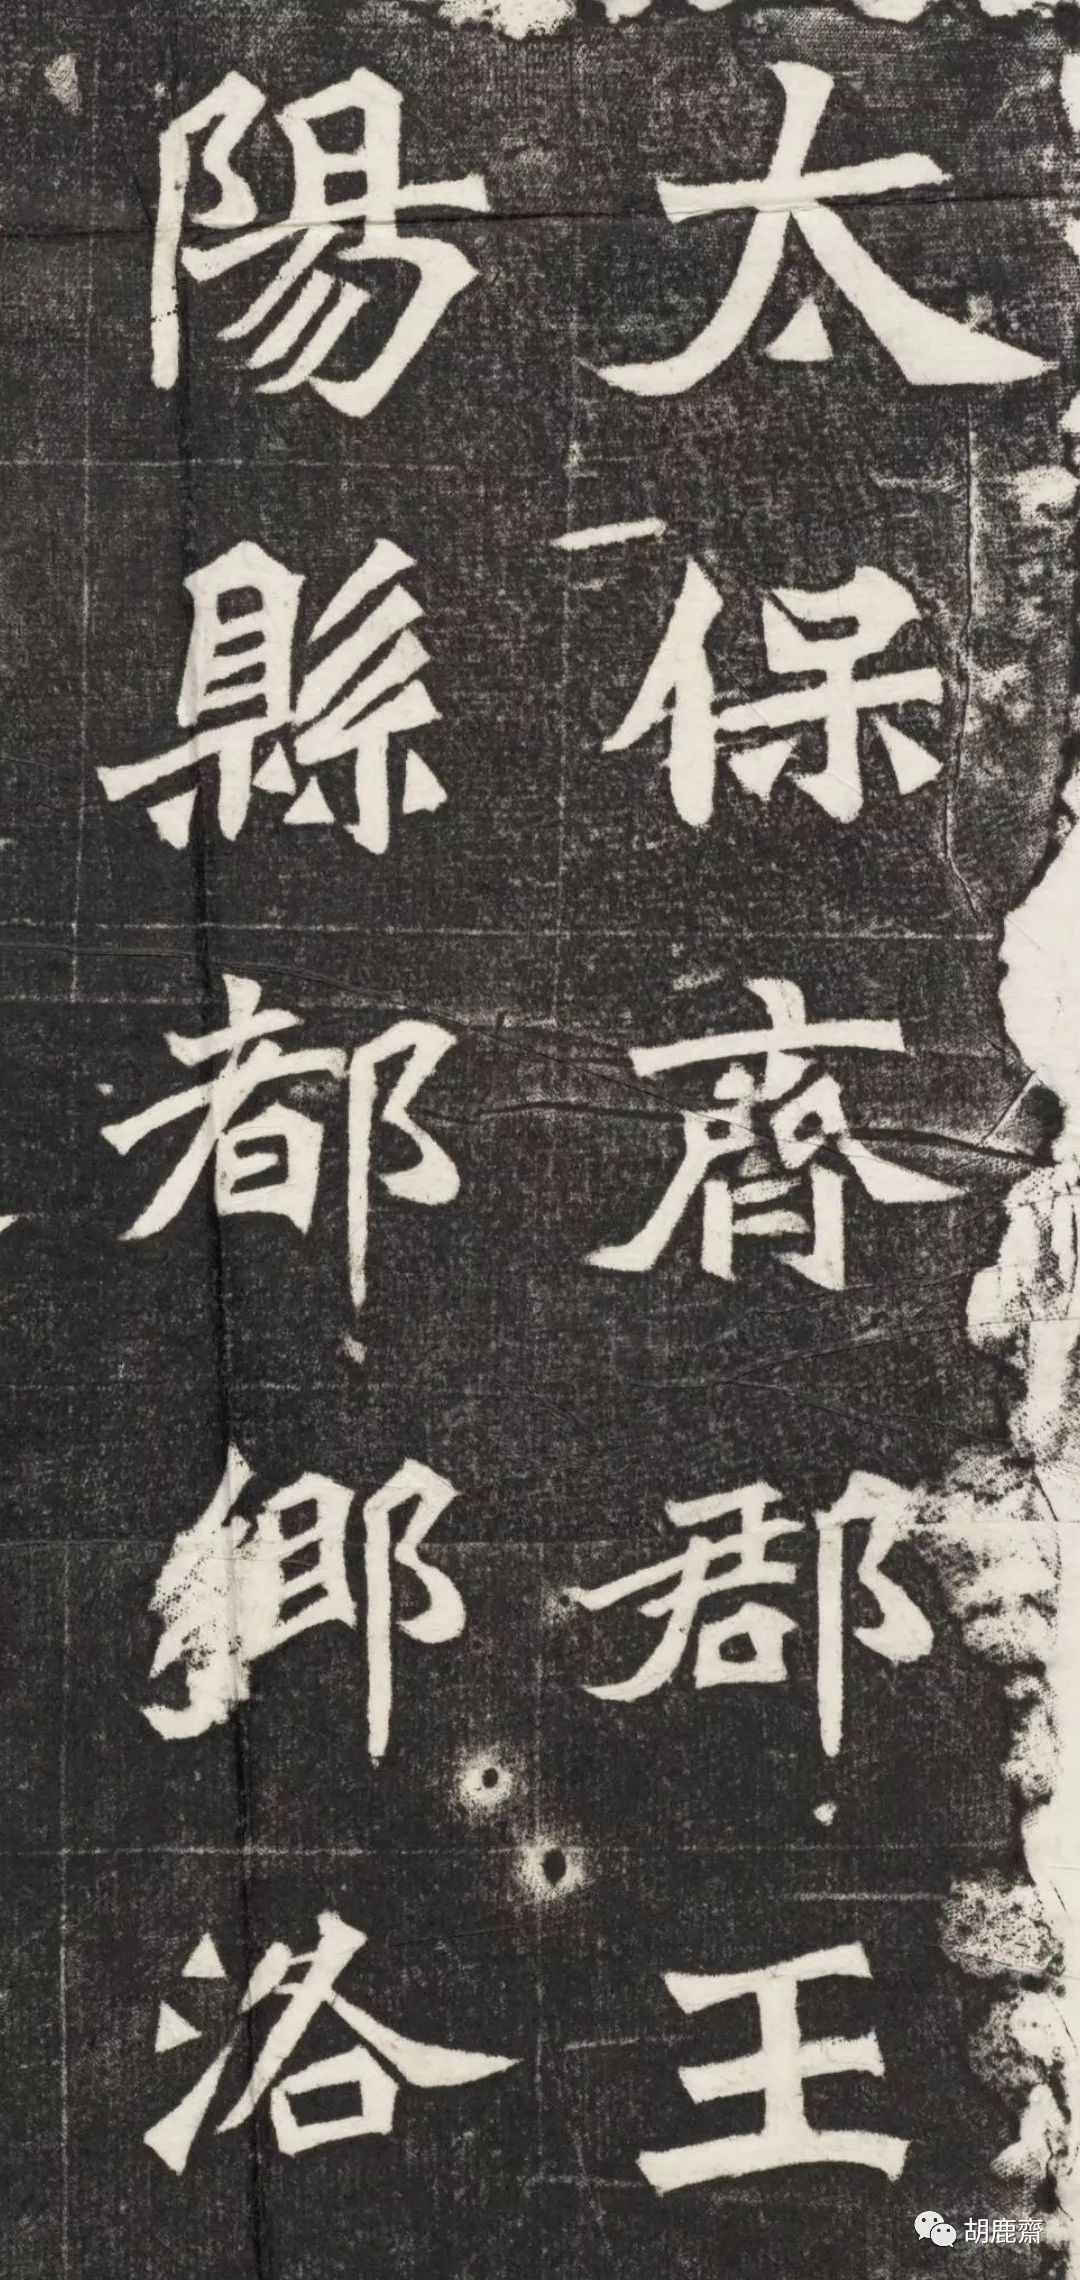 太保齊郡王
陽縣都鄉洛
胡鹿齋